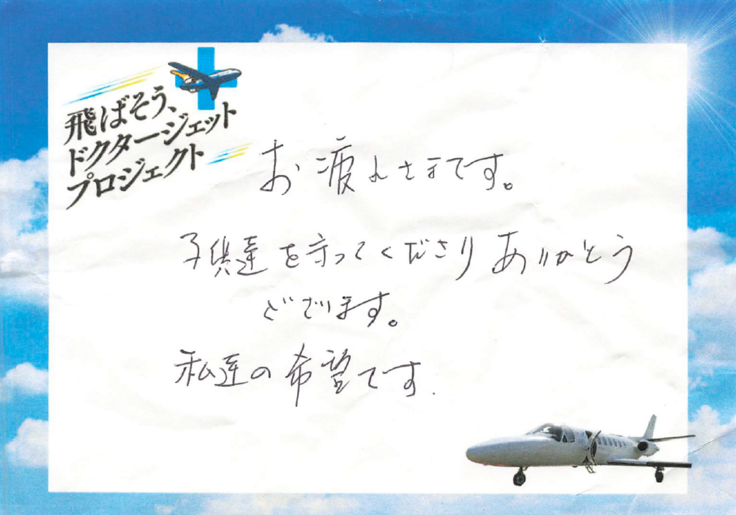 飛ばそう、
ドクタージェット
プロジェクト
お疲れさまです。
子供達を守ってくださりありがとう
ございます。
私達の希望です.